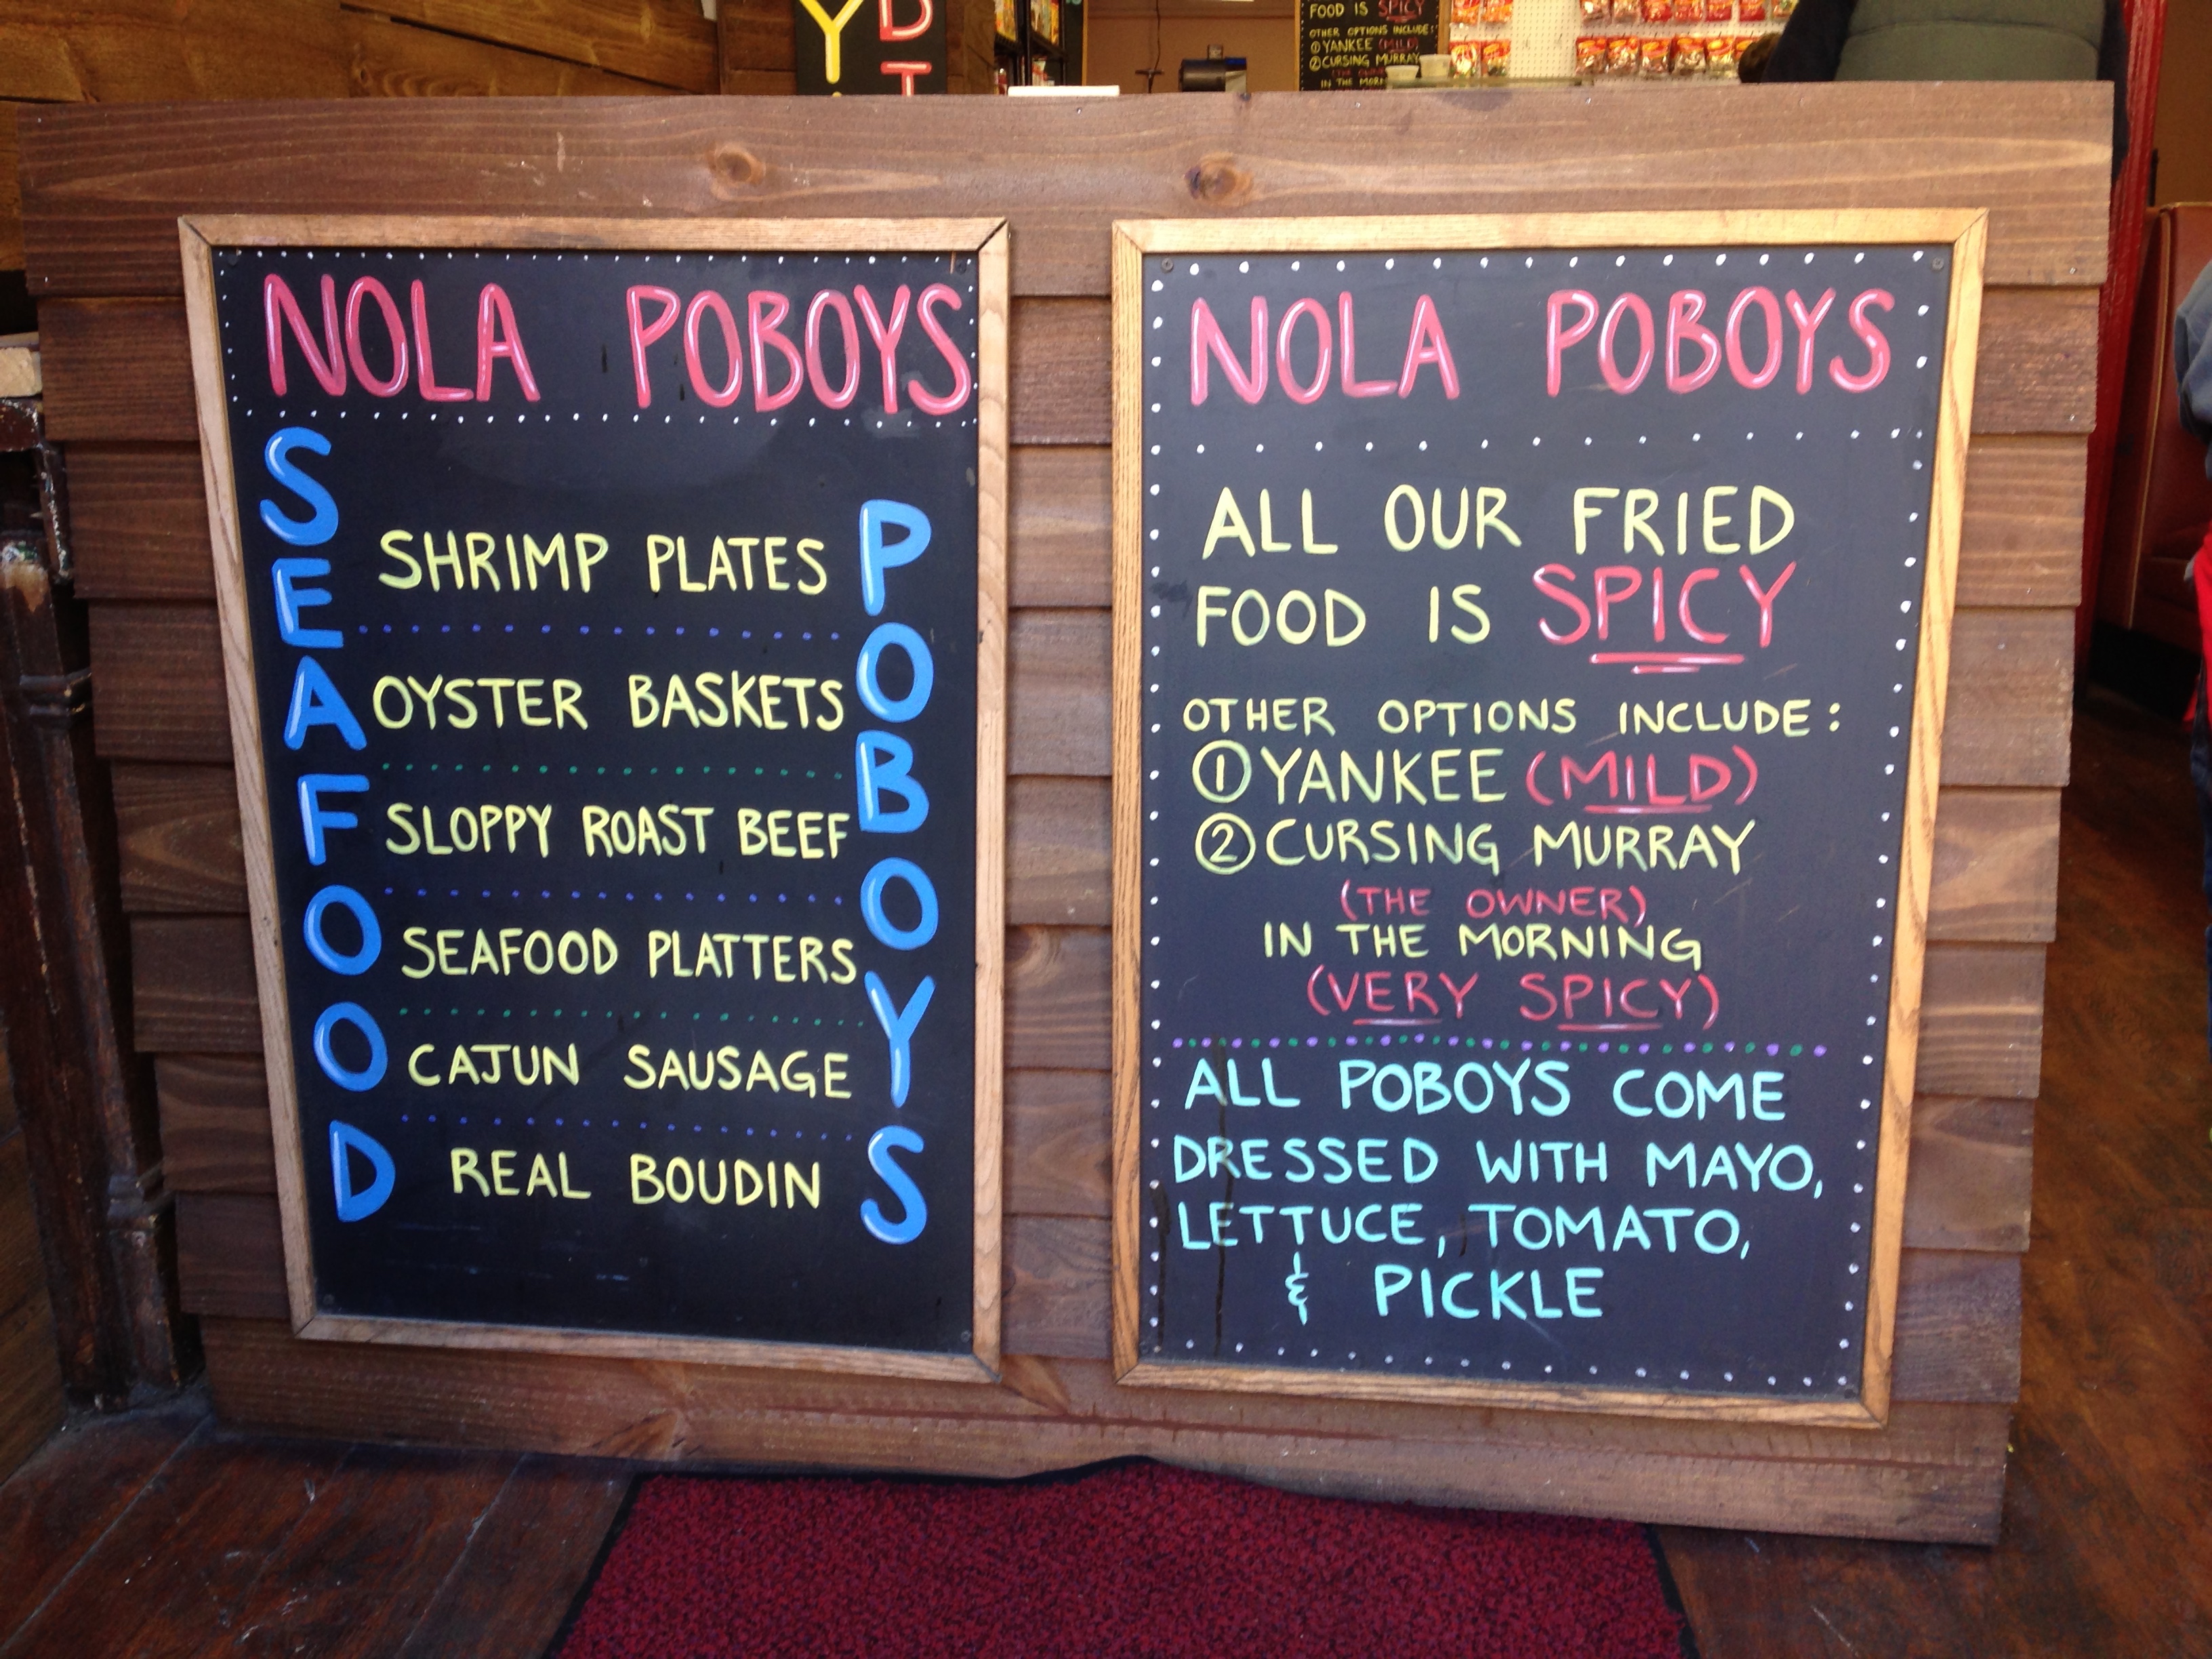 Y D
T
FOOD IS SPICY
OTHER OPTIONS INCLUDE:
① YANKEE (MILD)
② CURSING MURRAY
(THE OWNER)
IN THE MORN
NOLA POBOYS
SEAFOOD
SHRIMP PLATES
OYSTER BASKETS
SLOPPY ROAST BEEF
SEAFOOD PLATTERS
CAJUN SAUSAGE
REAL BOUDIN
POBOYS
NOLA POBOYS
ALL OUR FRIED
FOOD IS SPICY
OTHER OPTIONS INCLUDE:
① YANKEE (MILD)
② CURSING MURRAY
(THE OWNER)
IN THE MORNING
(VERY SPICY)
ALL POBOYS COME
DRESSED WITH MAYO,
LETTUCE, TOMATO,
& PICKLE